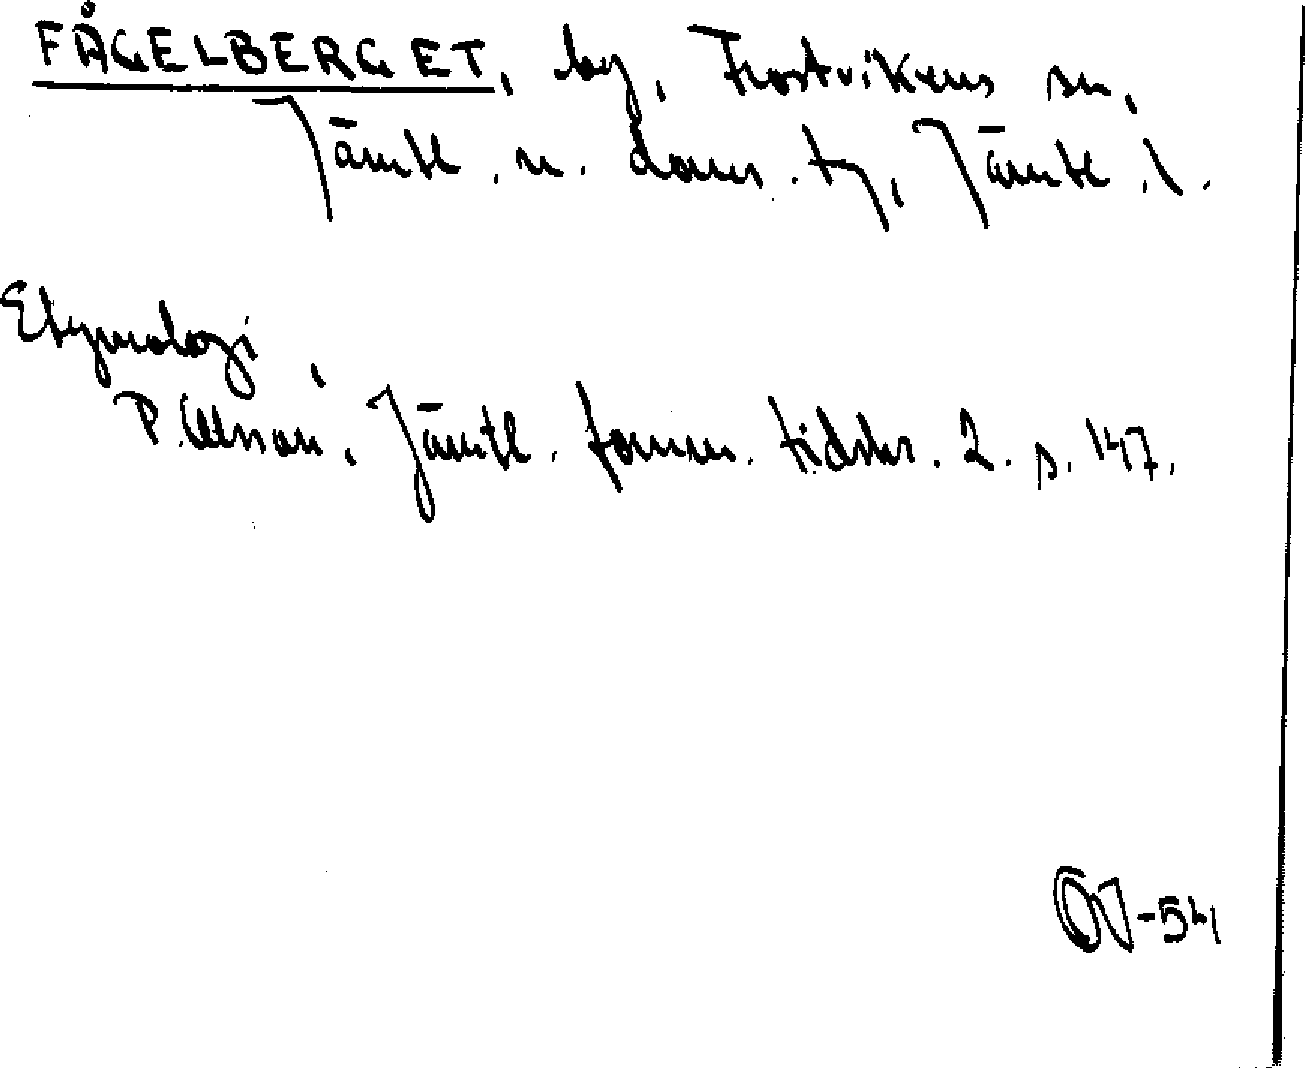 FÅGELBERGET, by, Frostvikens sn,
Jämtl. n. doms. tg, Jämtl. l.
Etymologi,
P. Olsson, Jämtl. fornm. tidskr. 2. s. 147.
-54